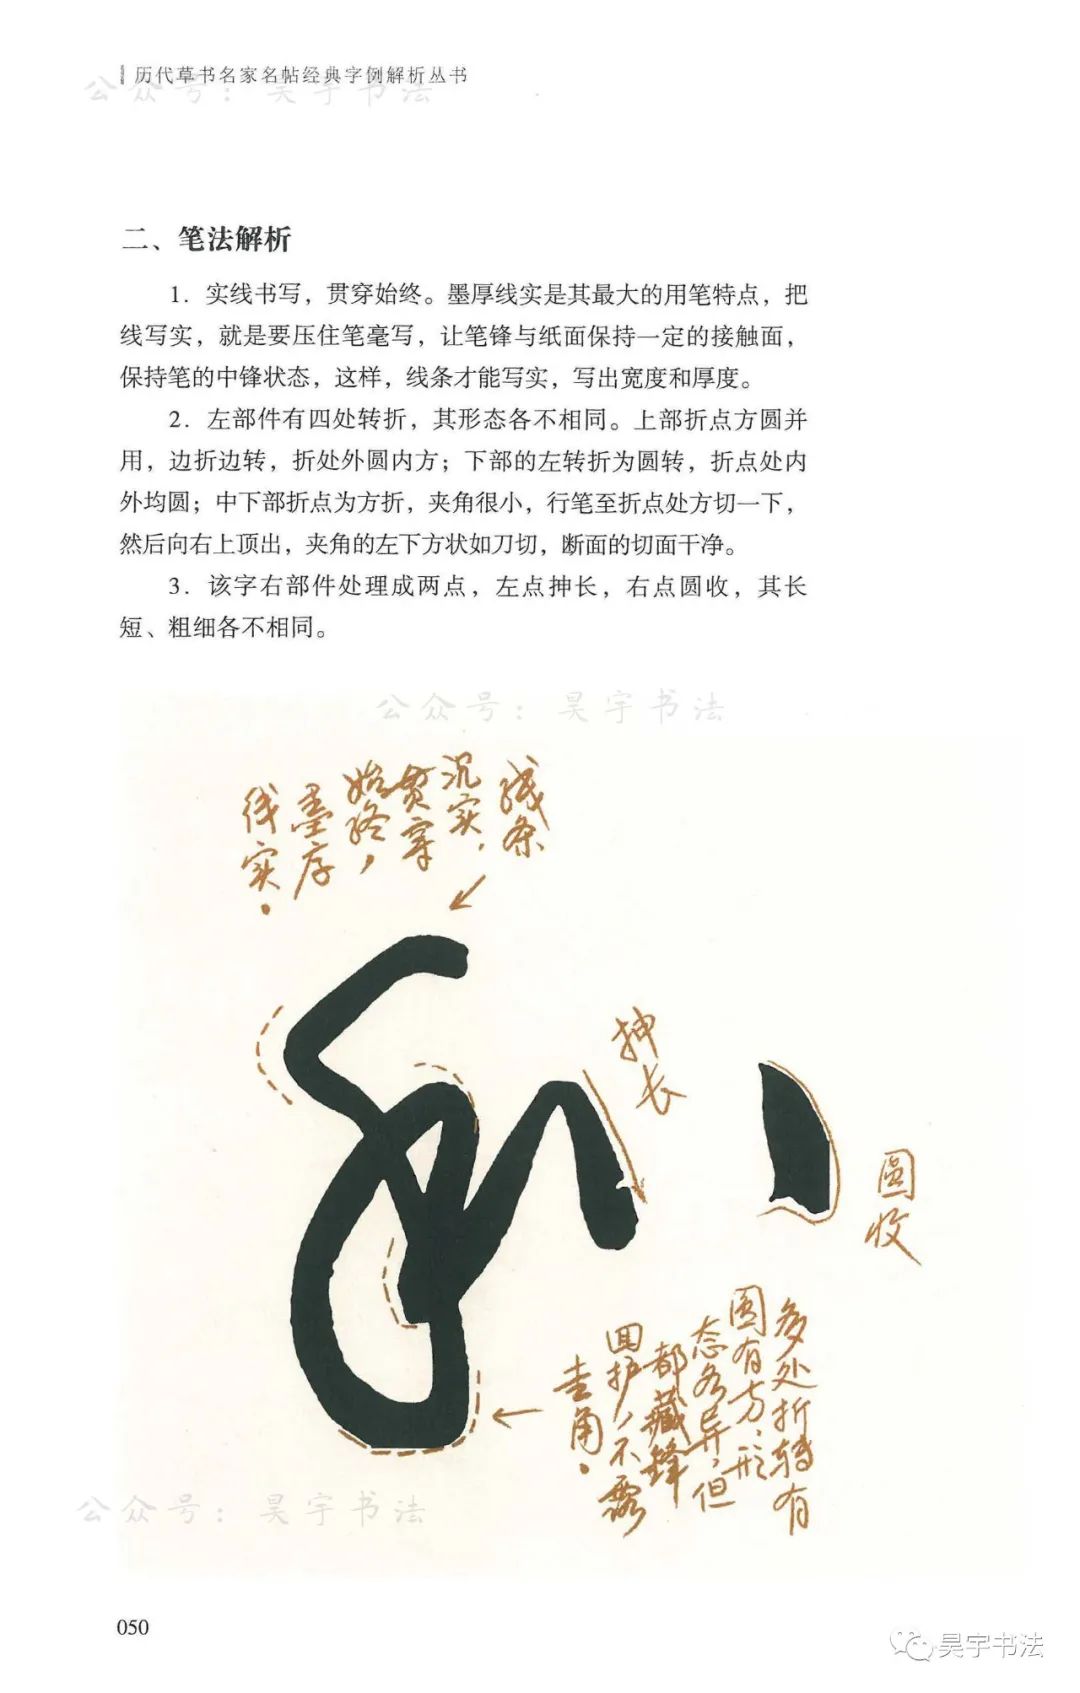 历代草书名家名帖经典字例解析丛书
公众号：昊宇书法
二、笔法解析
1. 实线书写，贯穿始终。墨厚线实是其最大的用笔特点，把
线写实，就是要压住笔毫写，让笔锋与纸面保持一定的接触面，
保持笔的中锋状态，这样，线条才能写实，写出宽度和厚度。
2. 左部件有四处转折，其形态各不相同。上部折点方圆并
用，边折边转，折处外圆内方；下部的左转折为圆转，折点处内
外均圆；中下部折点为方折，夹角很小，行笔至折点处方切一下，
然后向右上顶出，夹角的左下方状如刀切，断面的切面干净。
3. 该字右部件处理成两点，左点抻长，右点圆收，其长
短、粗细各不相同。
公众号：昊宇书法
线条
沉实，
贯穿
始终，
墨厚
线实。
抻长
圆收
多处折转有
圆有方，形
态各异，但
都藏锋
回护，不露
圭角。
公众号：昊宇书法
050
昊宇书法